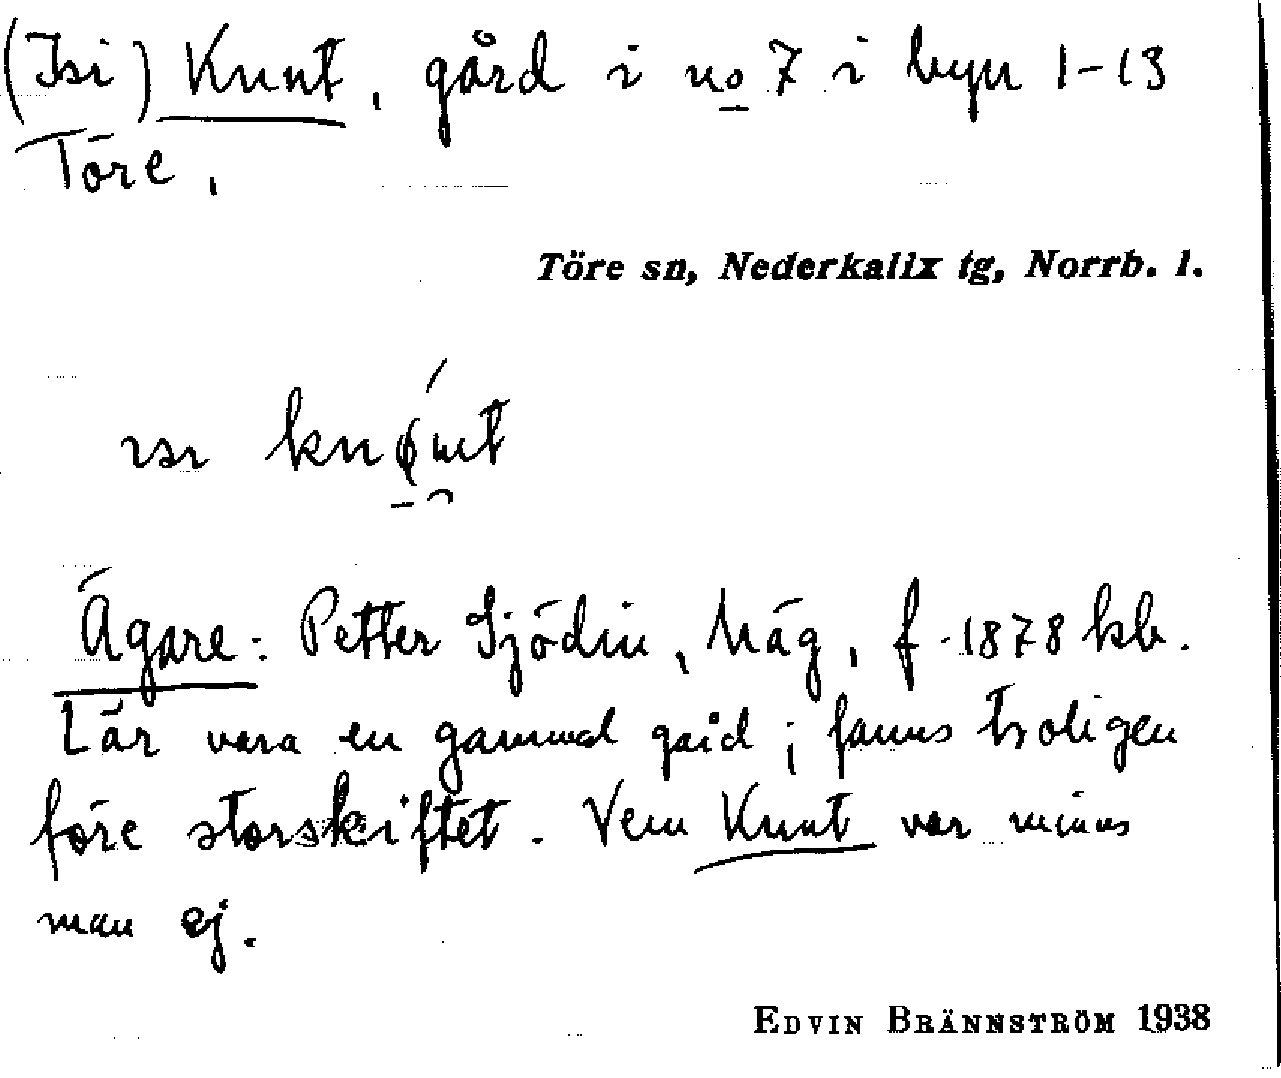 (Isi) Knut, gård i no 7 i byn 1-13
Töre,
Töre sn, Nederkalix tg, Norrb. l.
ɪsɪ
Ägare: Petter Sjödin, Måg, f. 1878 hb.
Lär vara en gammal gård; fanns troligen
före storskiftet. Vem Knut var minns
man ej.
EDVIN BRÄNNSTRÖM 1938